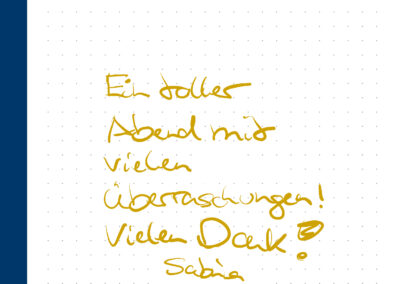 Ein toller
Abend mit
vielen
Überraschungen!
Vielen Dank!
Sabina